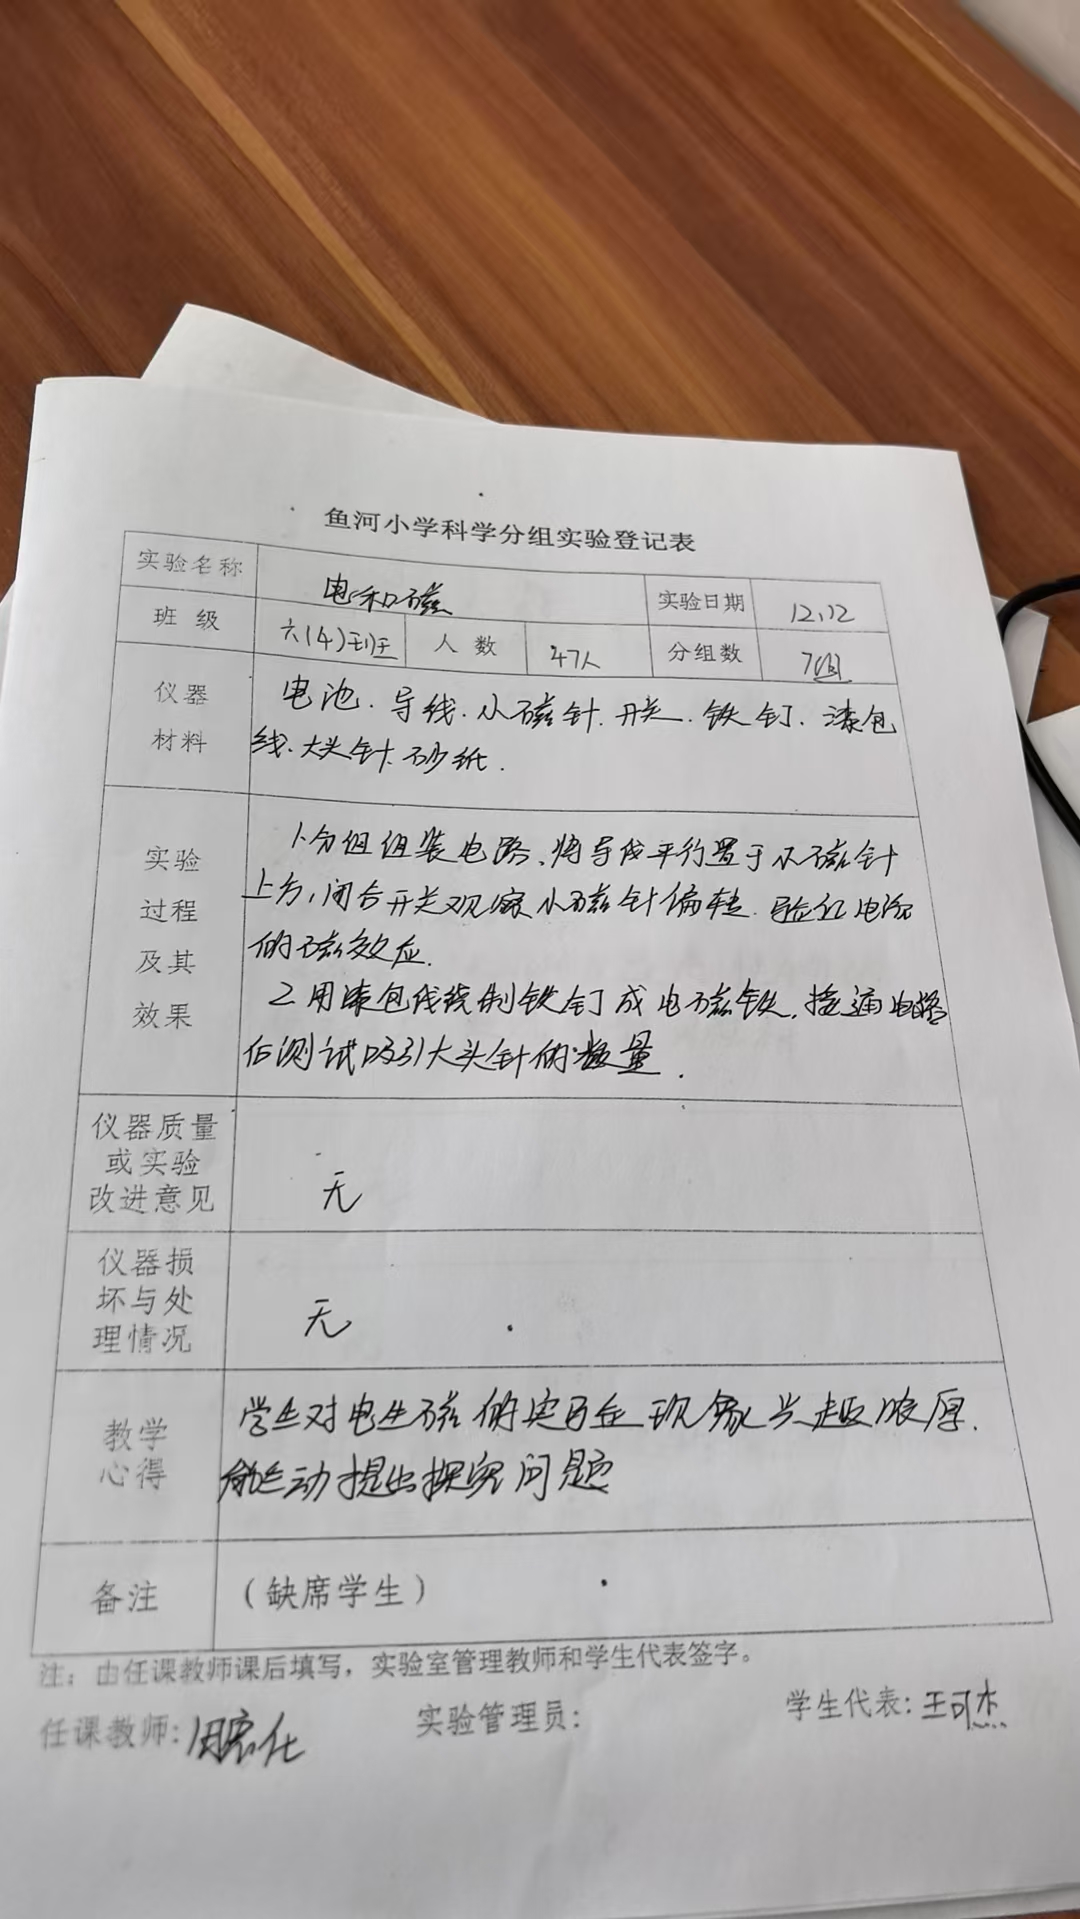 鱼河小学科学分组实验登记表
实验名称 电和磁 实验日期 12.12
班 级 六(4)班 人 数 47人 分组数 7组
仪器 电池.导线.小磁针.开关.铁钉.漆包
材料 线.大头针.砂纸.
实验 1.分组组装电路、将导线平行置于小磁针
过程 上方,闭合开关观察小磁针偏转.验证电流
及其 的磁效应.
效果 2.用漆包线绕制铁钉成电磁铁.接通电路
后测试吸引大头针的数量.
仪器质量
或实验
改进意见 无
仪器损
坏与处
理情况 无
教学 学生对电生磁的实验现象兴趣浓厚.
心得 能主动提出探究问题
备注 (缺席学生)
注:由任课教师课后填写,实验室管理教师和学生代表签字。
任课教师: 实验管理员: 学生代表:王可杰